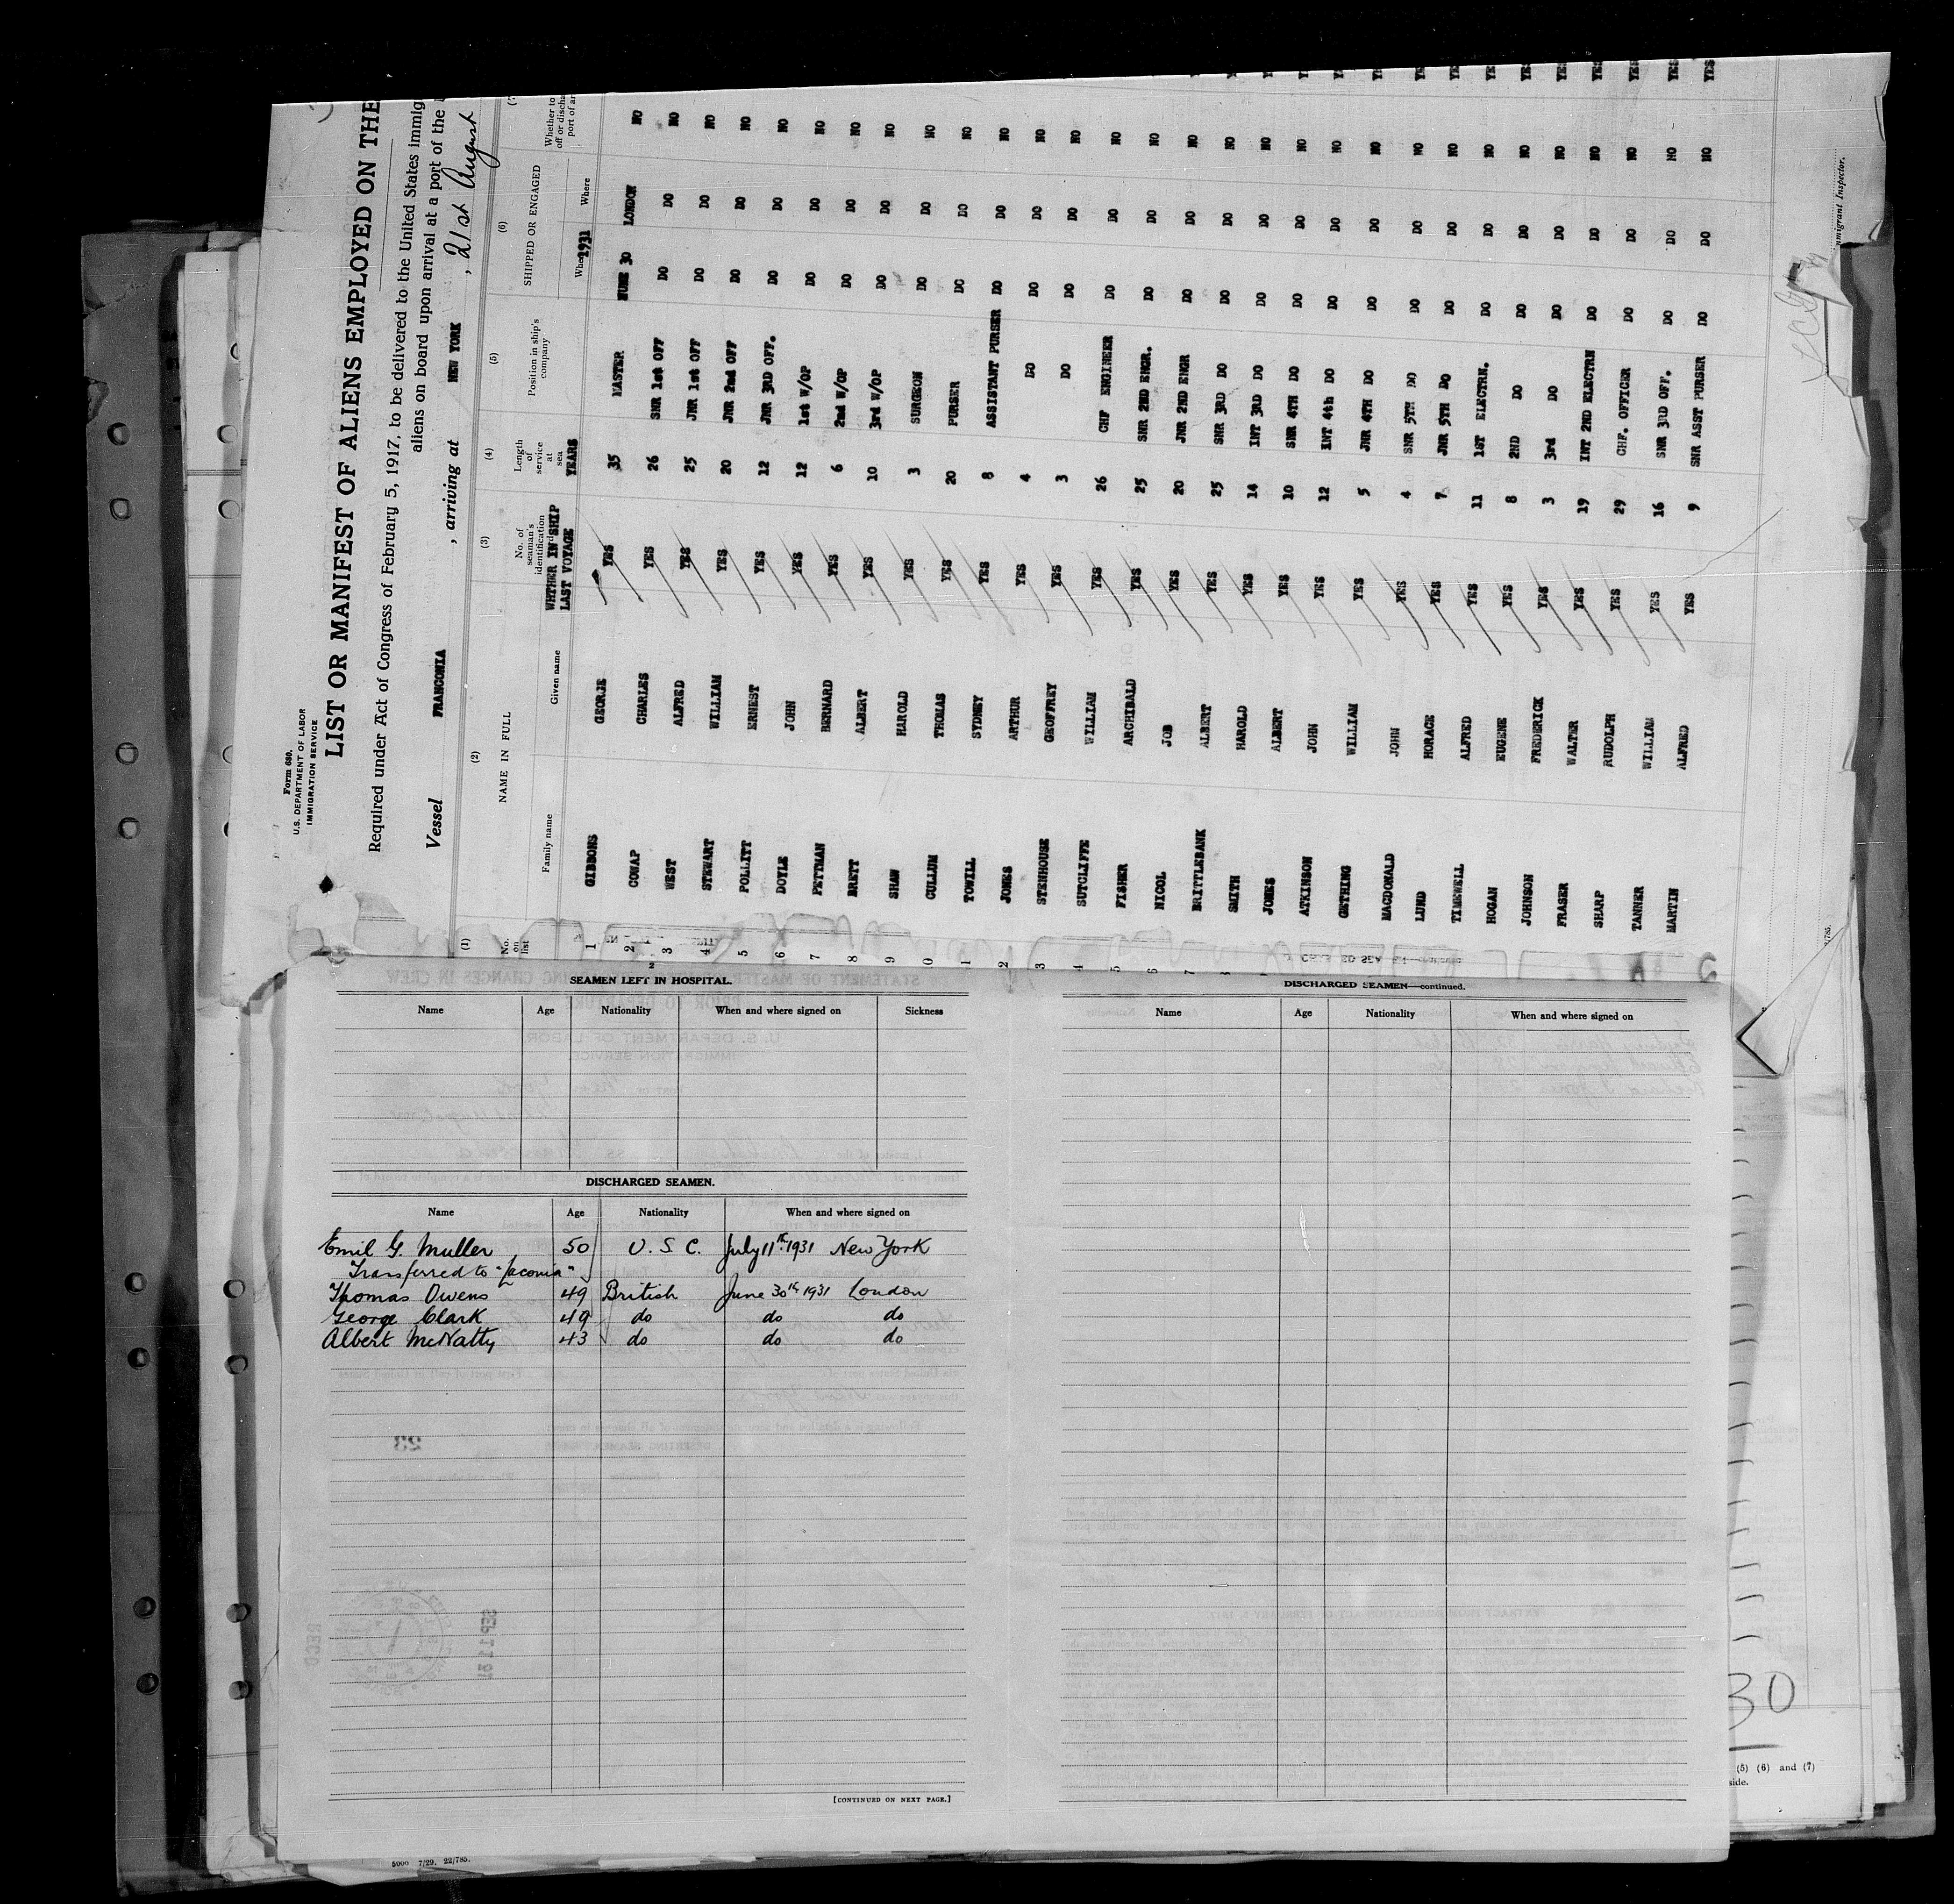 Form 680.
U.S. DEPARTMENT OF LABOR
IMMIGRATION SERVICE
LIST OR MANIFEST OF ALIENS EMPLOYED ON THE
Required under Act of Congress of February 5, 1917, to be delivered to the United States immig
aliens on board upon arrival at a port of the
Vessel FRANCONIA , arriving at NEW YORK , 21st August
(1) (2) (3) (4) (5) (6)
No. on list NAME IN FULL No. of seaman's identification Length of service at sea Position in ship's company SHIPPED OR ENGAGED Whether to
off or discha
port of ar
Family name Given name WHTHER IN SHIP LAST VOYAGE YEARS 1931 Where
1 GIBBONS GEORJE YES 35 MASTER 30 LONDON NO
2 CHARLES YES 26 SNR 1st OFF DO DO NO
3 WEST ALFRED YES 25 JNR 1st OFF DO DO NO
4 STEWART WILLIAM YES 20 JNR 2nd OFF DO DO NO
5 POLLITT ERNEST YES 12 JNR 3RD OFF. DO DO NO
6 DOYLE JOHN YES 12 1st W/OP DO DO NO
7 PETTMAN BERNARD YES 6 2nd W/OP DO DO NO
8 BRETT ALBERT YES 10 3rd W/OP DO DO NO
9 SHAW HAROLD YES 3 SURGEON DO DO NO
0 CULLUM THOMAS YES 20 PURSER DO DO NO
1 TOWILL SYDNEY YES 8 ASSISTANT PURSER DO DO NO
2 JONES ARTHUR YES 4 DO DO DO NO
3 STENHOUSE GEOFFREY YES 3 DO DO DO NO
4 SUTCLIFFE WILLIAM YES 26 CHF ENGINEER DO DO NO
5 FISHER ARCHIBALD YES 25 SNR 2ND ENGR. DO DO NO
6 NICOL JOB YES 20 JNR 2ND ENGR DO DO NO YES
7 BRITTLEBANK ALBERT YES 25 SNR 3RD DO DO DO NO YES
SMITH HAROLD YES 14 INT 3RD DO DO DO NO YES
JONES ALBERT YES 10 SNR 4TH DO DO DO NO YES
ATKINSON JOHN YES 12 INT 4th DO DO DO NO YES
GETHING WILLIAM YES 5 JNR 4TH DO DO DO NO YES
MACDONALD JOHN YES 4 SNR 5TH DO DO DO NO YES
LUND HORACE YES 7 JNR 5TH DO DO DO NO YES
TIMEWELL ALFRED YES 11 1ST ELECTRN. DO DO NO YES
HOGAN EUGENE YES 8 2ND DO DO DO NO YES
JOHNSON FREDERICK YES 3 3rd DO DO DO NO YES
FRASER WALTER YES 19 INT 2ND ELECTRN DO DO NO YES
SHARP RUDOLPH YES 29 CHF. OFFICER DO DO NO YES
TANNER WILLIAM YES 16 SNR 3RD OFF. DO DO NO YES
MARTIN ALFRED YES 9 SNR ASST PURSER DO DO NO YES
mmigrant Inspector.
SEAMEN LEFT IN HOSPITAL.
Name Age Nationality When and where signed on Sickness
DISCHARGED SEAMEN.
Name Age Nationality When and where signed on
Emil G. Muller 50 U.S.C. July 11th 1931 New York
Transferred to "Laconia"
Thomas Owens 49 British June 30th 1931 London
George Clark 49 do do do
Albert McNatty 43 do do do
[CONTINUED ON NEXT PAGE.]
5000 7/29. 22/785.
DISCHARGED SEAMEN—continued.
Name Age Nationality When and where signed on
30
(5) (6) and (7)
side.